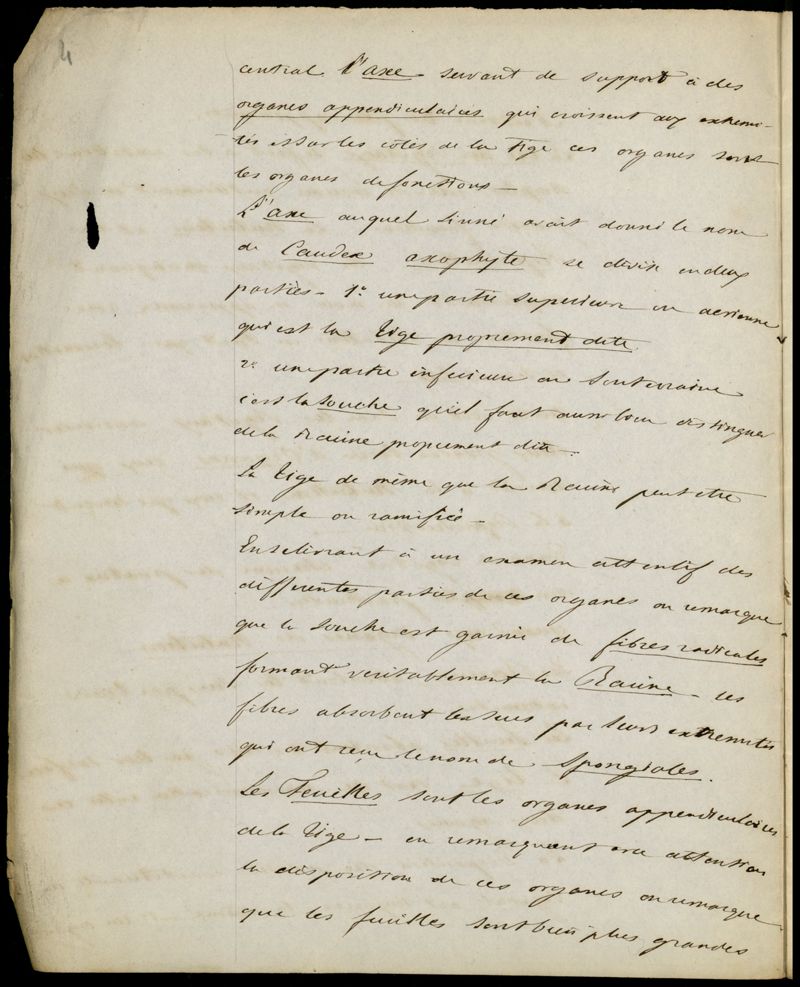 4
central l'axe servant de support à des
organes appendiculaires qui croissent aux extremi-
tés et sur les côtés de la tige ces organes sont
les organes de fonctions -
L'axe auquel Linné avait donné le nom
de Caudex axophyte se divise en deux
parties - 1° une partie superieure ou aerienne
qui est la tige proprement dite.
2° une partie inferieure ou souterraine
c'est la souche qu'il faut aussi bien distinguer
de la Racine proprement dite -
La tige de même que la Racine peut etre
simple ou ramifiée -
En se livrant à un examen attentif des
differentes parties de ces organes on remarque
que la souche est garnie de fibres radicales
formant veritablement la Racine - ces
fibres absorbent les sucs par leurs extremités
qui ont reçu le nom de spongioles.
Les Feuilles sont les organes appendiculaires
de la tige - en remarquant avec attention
la disposition de ces organes on remarque
que les feuilles sont bien plus grandes